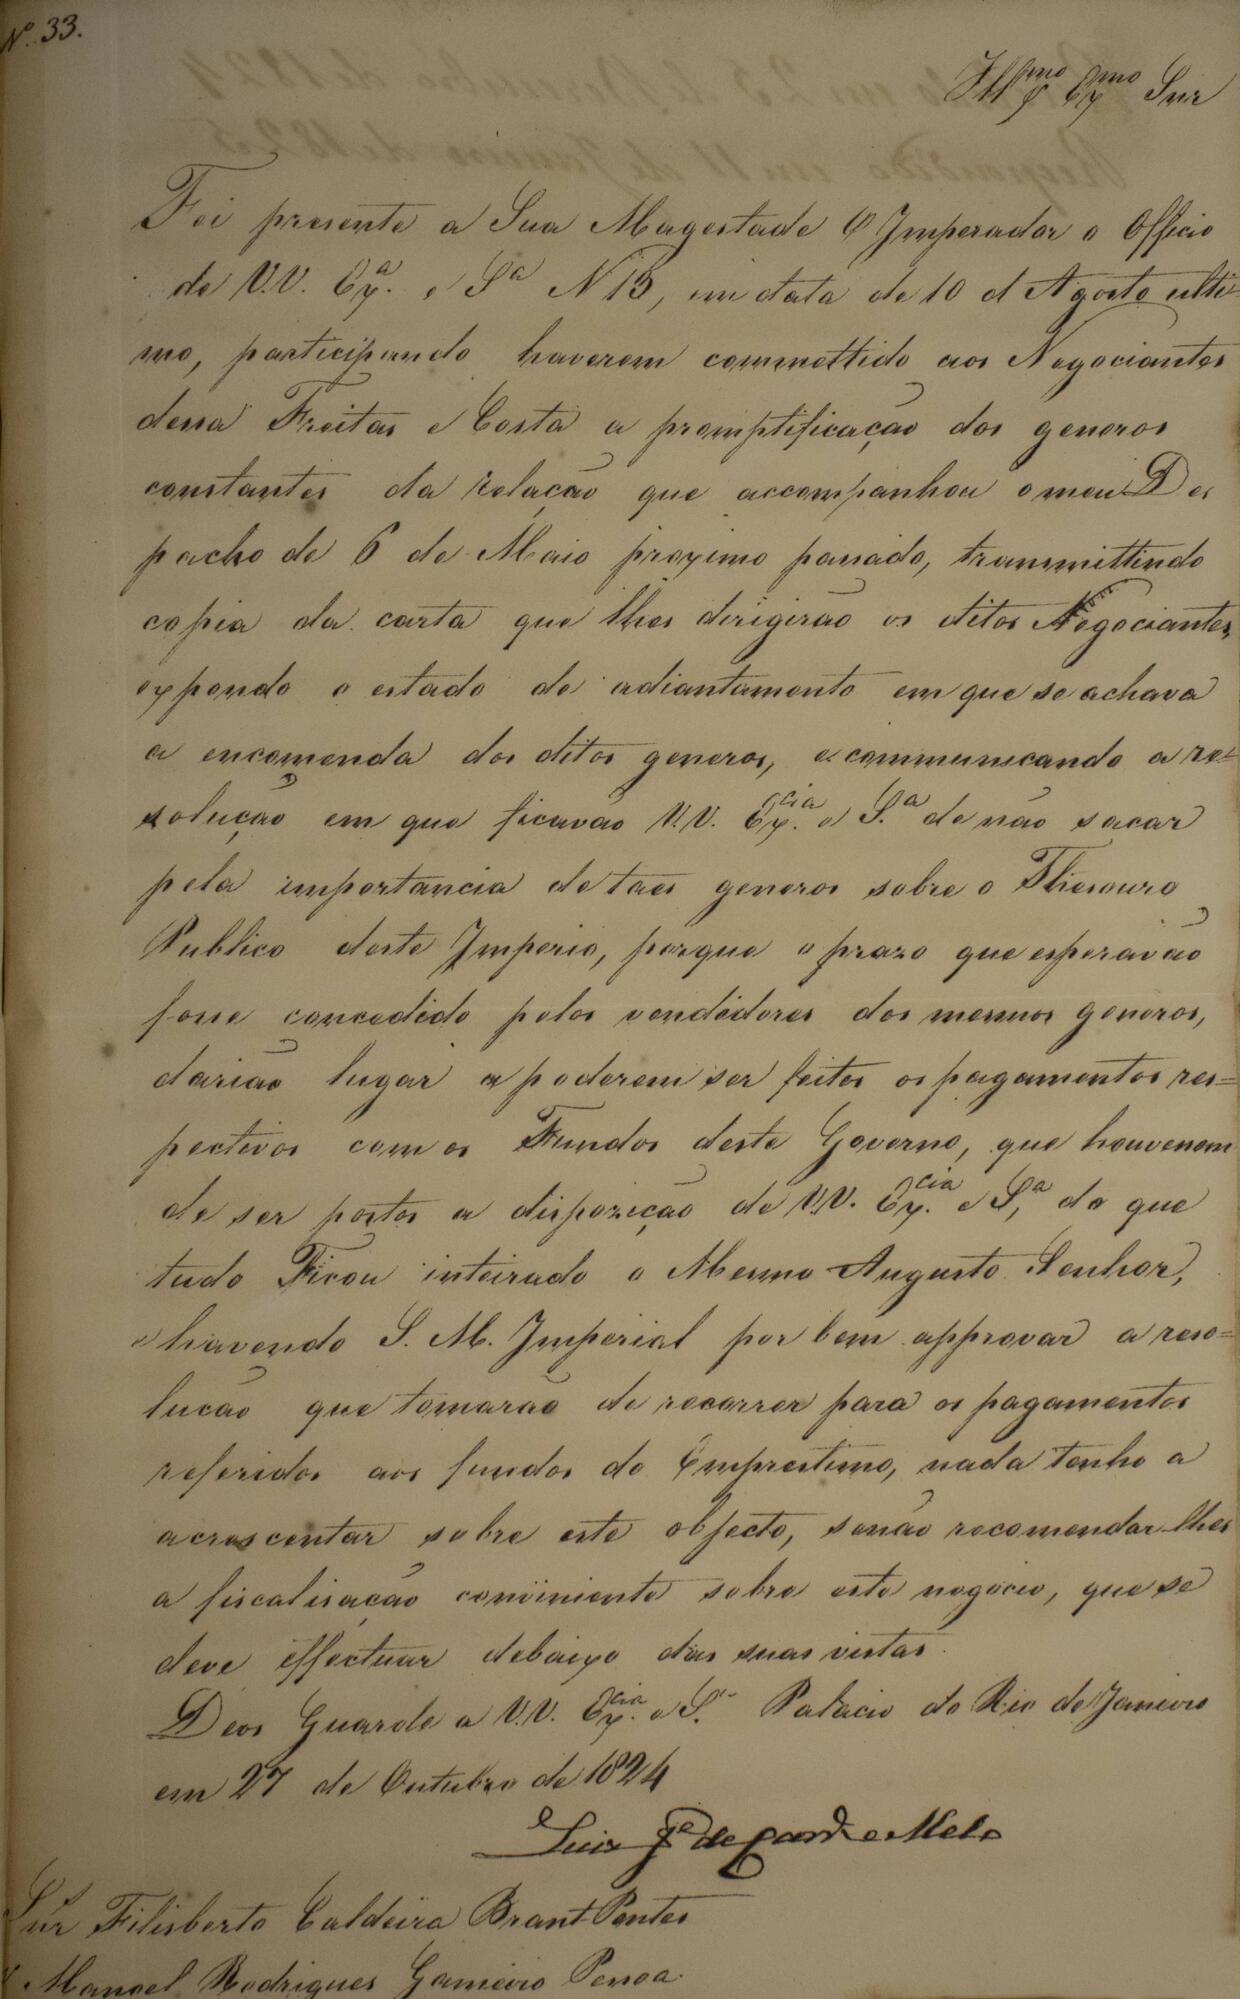 Nº 33.
Illmo e Exmo Snr
Foi presente a Sua Magestade O Imperador o Officio
de V.V. Exa. e Sa N 13, em data de 10 d Agosto ulti-
mo, participando haverem commettido aos Negociantes
dessa Freitas e Costa a promptificação dos generos
constantes da relação que accompanhou o meu Des
pacho de 6 de Maio proximo passado, transmittindo
copia da carta que lhes dirigirão os ditos Negociantes,
expondo o estado de adiantamento em que se achava
a encomenda dos ditos generos, e communicando a re=
solução em que ficavão V.V. Excia. e S.a de não sacar
pela importancia de taes generos sobre o Thesouro
Publico deste Imperio, porque o prazo que esperavão
fosse concedido pelos vendedores dos mesmos generos,
darião lugar a poderem ser feitos os pagamentos res=
pectivos com os Fundos deste Governo, que houvessem
de ser postos a dispozição de V.V. Excia. e Sa, do que
tudo Ficou inteirado o Mesmo Augusto Senhor,
e havendo S. M. Imperial por bem approvar a reso=
lucão que tomarão de recorrer para os pagamentos
referidos aos fundos do Emprestimo, nada tenho a
acrescentar sobre este objecto, senão recomendar-lhes
a fiscalisação conviniente sobre este negocio, que se
deve effectuar debaixo das suas vistas.
Deos Guarde a V.V. Excia. e S.a Palacio do Rio de Janeiro
em 27 de Outubro de 1824
Luiz Je de Carvo e Mello
Snr Filisberto Caldeira Brant Pontes
e Manoel Rodrigues Gameiro Pessoa.